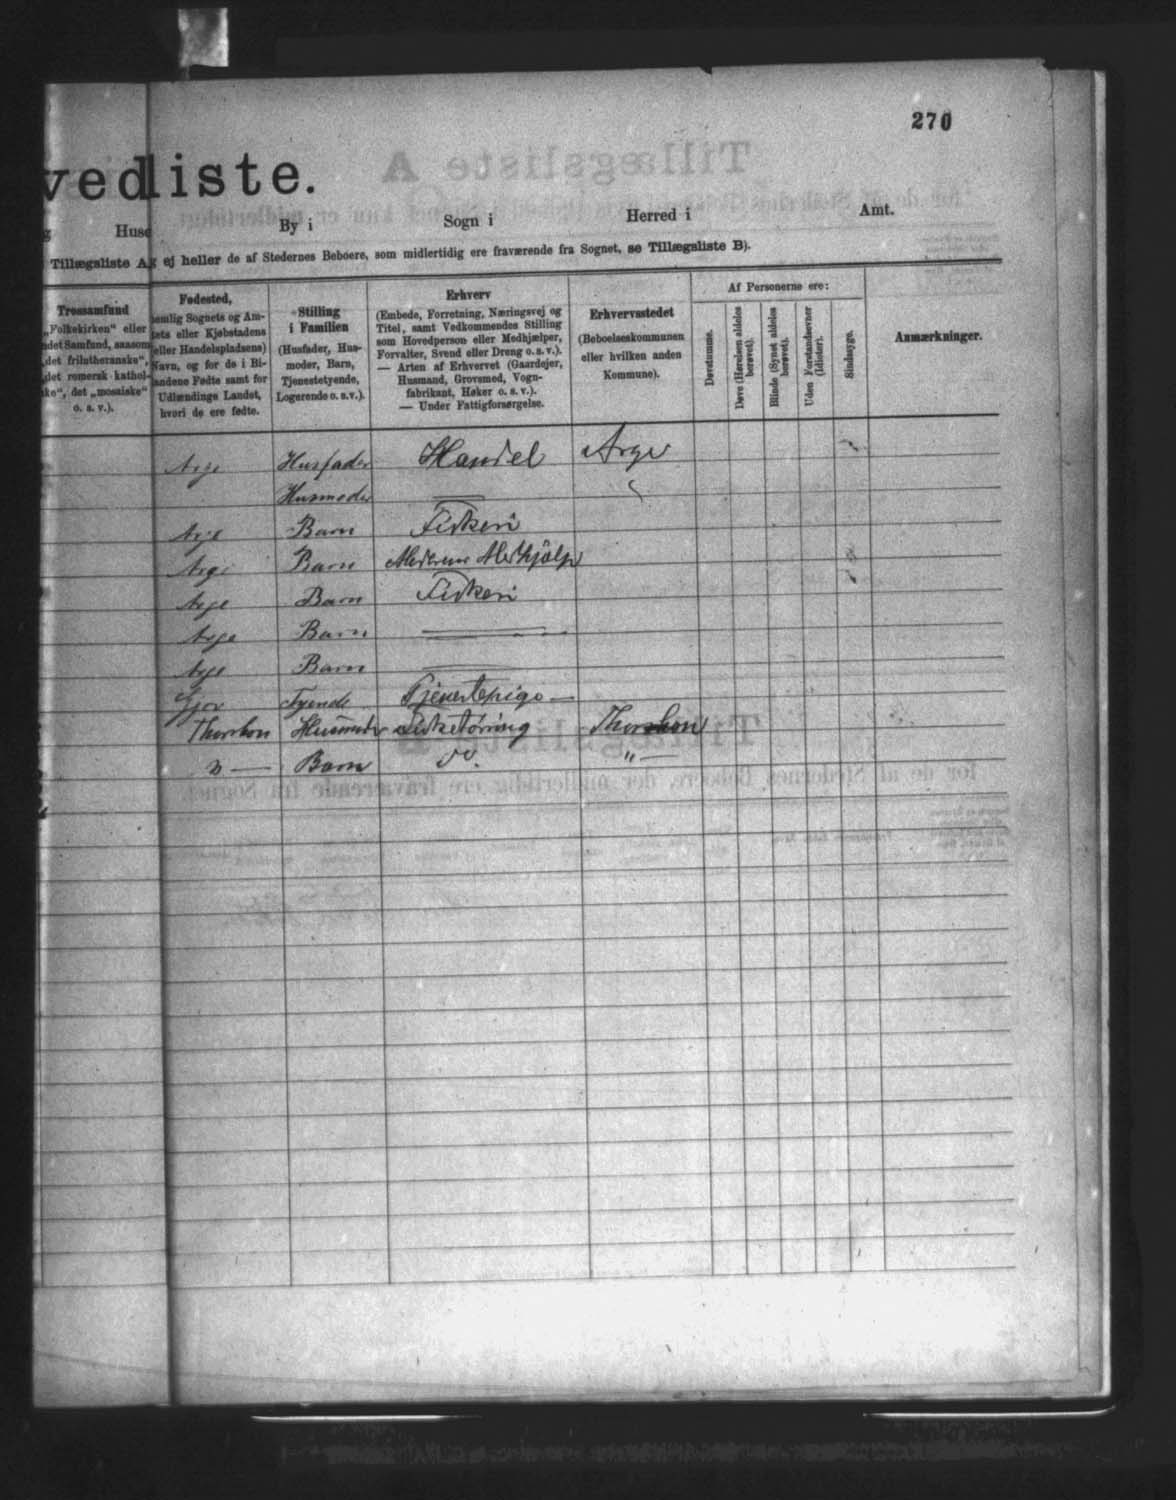 270
vedliste.
g Huse By i Sogn i Herred i Amt.
Tillægsliste A, ej heller de af Stedernes Beboere, som midlertidig ere fraværende fra Sognet, se Tillægsliste B).
Trossamfund
„Folkekirken" eller
ndet Samfund, saasom
„det frilutheranske",
„det romersk kathol-
ske", det „mosaiske"
o. s. v.).
Fødested,
nemlig Sognets og Am-
tets eller Kjøbstadens
(eller Handelspladsens)
Navn, og for de i Bi-
landene Fødte samt for
Udlændinge Landet,
hvori de ere fødte.
Stilling
i Familien
(Husfader, Hus-
moder, Barn,
Tjenestetyende,
Logerende o. s. v.).
Erhverv
(Embede, Forretning, Næringsvej og
Titel, samt Vedkommendes Stilling
som Hovedperson eller Medhjælper,
Forvalter, Svend eller Dreng o. s. v.).
— Arten af Erhvervet (Gaardejer,
Husmand, Grovsmed, Vogn-
fabrikant, Høker o. s. v.).
— Under Fattigforsørgelse.
Erhvervsstedet
(Beboelseskommunen
eller hvilken anden
Kommune).
Af Personerne ere:
Døvstumme.
Døve (Hørelsen aldeles
berøvet).
Blinde (Synet aldeles
berøvet).
Uden Forstandsevner
(Idioter).
Sindssyge.
Anmærkninger.
Arge Husfader Handel Arge
Husmoder —
Arge Barn Fiskeri
Arge Barn Medhjælp
Arge Barn Fiskeri
Arge Barn —
Arge Barn —
Gjov Tyende Tjenestepige —
Thorshon Husmoder Thorshon
" — Barn do. " —